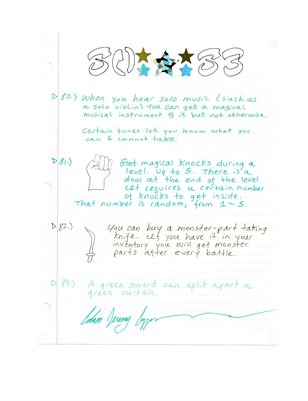 80 83
▷ 80.) When you hear solo music (such as
a solo violin) you can get a magical
musical instrument of it but not otherwise.
Certain tunes let you know what you
can & cannot take.
▷ 81.) Get magical knocks during a
level. Up to 5. There is a
door at the end of the level.
requires a certain number
of knocks to get inside.
That number is random, from 1~5.
▷ 82.) You can buy a monster-part taking
knife. you have it in your
inventory you will get monster
parts after every battle.
▷ 83.) A green sword can split apart a
green curtain.
Adam Jeremy